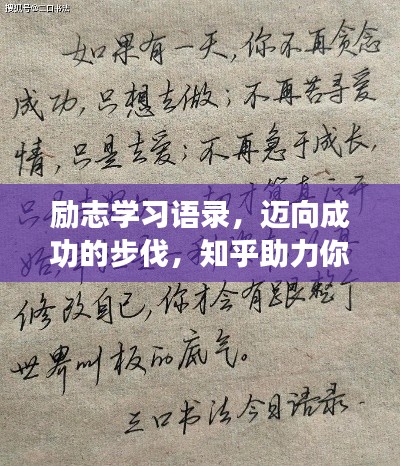 搜狐号@三口书法
如果有一天,你不再贪念
成功,只想去做;不再苦寻爱
情,只是去爱;不再急于成长,
励志学习语录，迈向成
功的步伐，知乎助力你
修改自己,你才会有跟整个
世界叫板的底气。
三口书法今日语录.